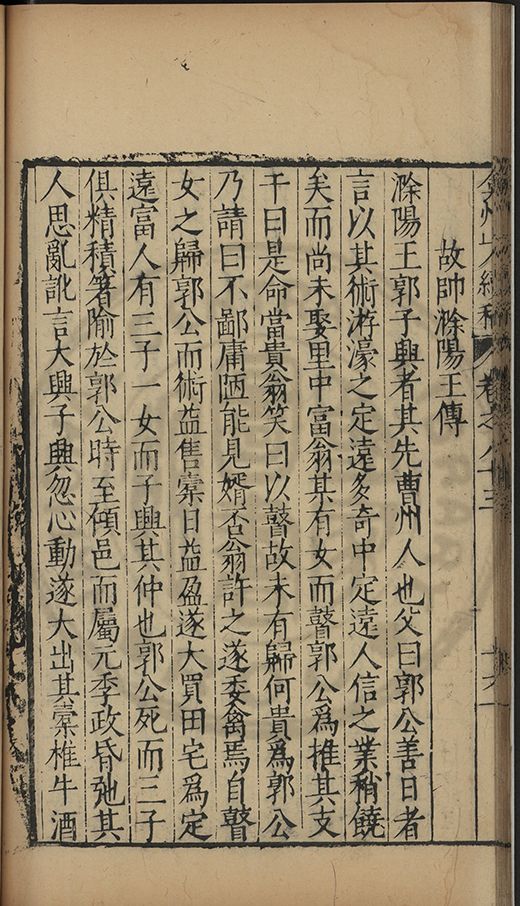 弇州史續稿 卷之八十三
故帥滁陽王傳
滁陽王郭子興者其先曹州人也父曰郭公善日者
言以其術游濠之定遠多奇中定遠人信之業稍饒
矣而尚未娶里中富翁某有女而瞽郭公爲推其支
干曰是命當貴翁笑曰以瞽故未有歸何貴爲郭公
乃請曰不鄙庸陋能見婿否翁許之遂委禽焉自瞽
女之歸郭公而術益售橐日益盈遂大買田宅爲定
遠富人有三子一女而子興其仲也郭公死而三子
俱精積箸踰於郭公時至傾邑而屬元季政昏弛其
人思亂訛言大興子興忽心動遂大出其橐椎牛酒